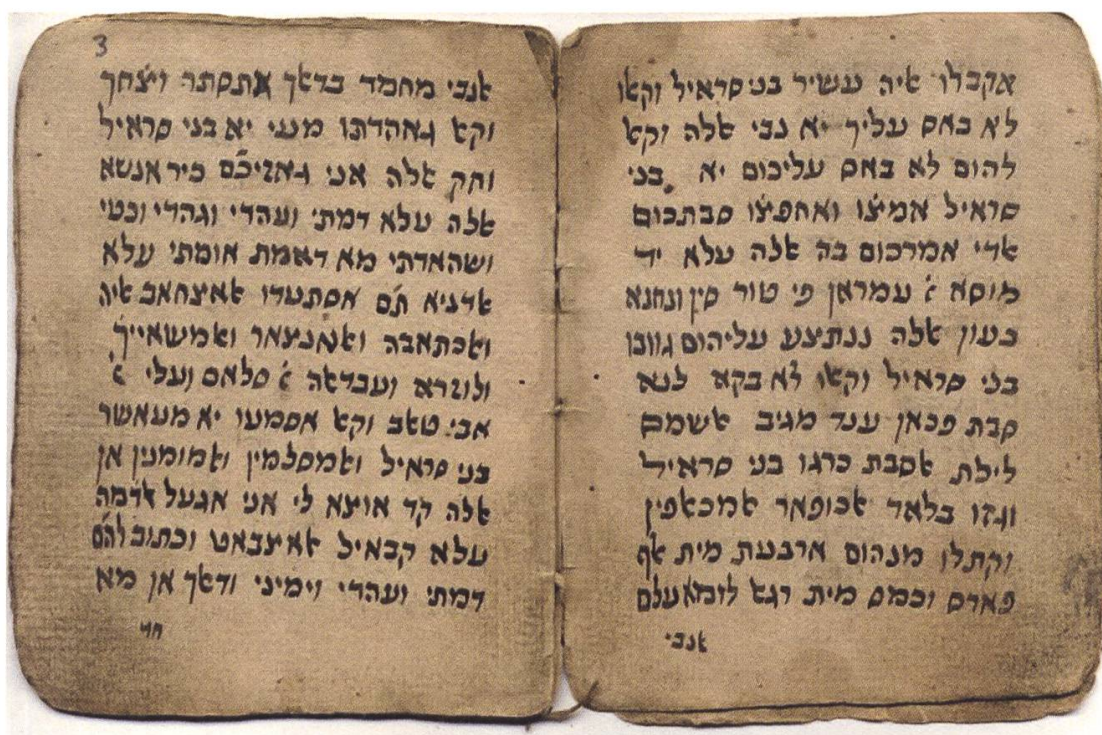 ﭏקבלו ﭏיה עשיר בני סראיל וקﭏו
לא באס עליך יא נבי ﭏלה וקﭏ
להום לא באס עליכום יא בני
סראיל אמיצ̇ו ואחפצ̇ו סבתכום
ﭏדי אמרכום בה ﭏלה עלא יד
מוסא עמראן פי טור סין ונחנא
בעון ﭏלה ננתצע עליהום גוובו
בני סראיל וקﭏו לא בקא לנא
סבת פכאן ענד מגיב ﭏשמס
לילת ﭏסבת כרגו בני סראיל
וגזו בלאד ﭏכופאר ﭏמכאפין
וקתלו מנהום ארבעת מית ﭏף
פארס וכמס מית רגﭏ לומא עלם
ﭏנבי
3
ﭏנבי מחמד בדאך ויצחך
וקﭏ גאהדתו מעי יא בני סראיל
וחק ﭏלה אני גאזיכ̇ם כיר אנשא
ﭏלה עלא דמתי ועהדי וגהדי וכטי
ושהאדתי מא דאמת אומתי עלא
ﭏדניא תם אסתעדו ﭏאצחאב איה
וﭏכתאבה וﭏאנצאר וﭏמשאייך
ולוזרא ועבדאה סלאם ועלי
אבי טﭏב וקﭏ אסמעו יא מעאשר
בני סראיל וﭏמסלמין וﭏמומנין אן
ﭏלה קד אוצא לי אני אגעל ﭏדמה
עלא קבאיל ﭏאיצבאט וכתוב להם
דמתי ועהדי וימיני ודאך אן מא